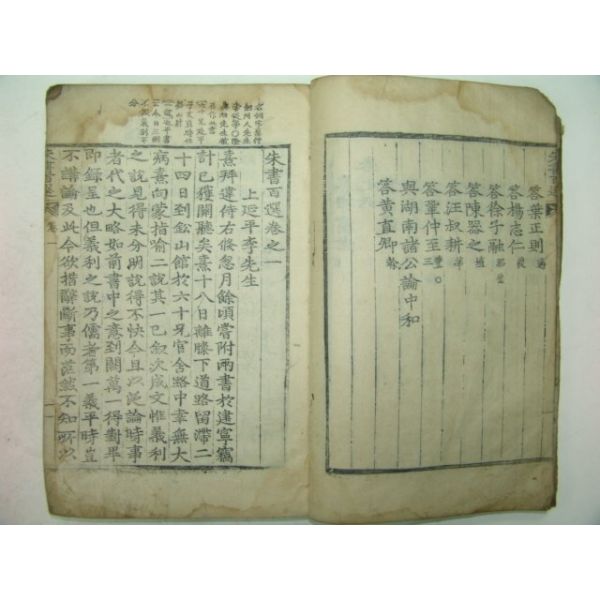 答葉正則適
答楊志仁
答徐子融
答陳器之埴
答汪叔耕
答鞏仲至豐
與湖南諸公論中和
答黃直卿榦
朱書百選卷之一
上延平李先生
熹拜違侍右倏忽月餘頃嘗附兩書於建寧竊
計已獲關聽矣熹十八日離膝下道路留滯二
十四日到鉛山館於六十兄官舍路中幸無大
病熹向蒙指喻二說其一已敘次成文惟義利
之說見得未分明說得不快今且以泛論時事
者代之大略如前書中之意到闕萬一得對畢
即錄呈也但義利之說乃儒者第一義平時豈
不講論及此今欲措辭斷事而茫然不知所以